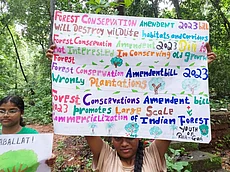 FOREST CONSERVATION AMENDENT BILL
Will DESTROY WILDLIFE habitats and Corridors
Forest Conservation Amendent 2023 Bill is
Not Interested In Conserving Old growth
Forest
Forest Conservation Amendent Bill 2023
Wronly Plantations
Forest Conservations Amendent bill
2023 promotes Large Scale
Commercialization of Indian Forest
YOUTH
ABALLATI